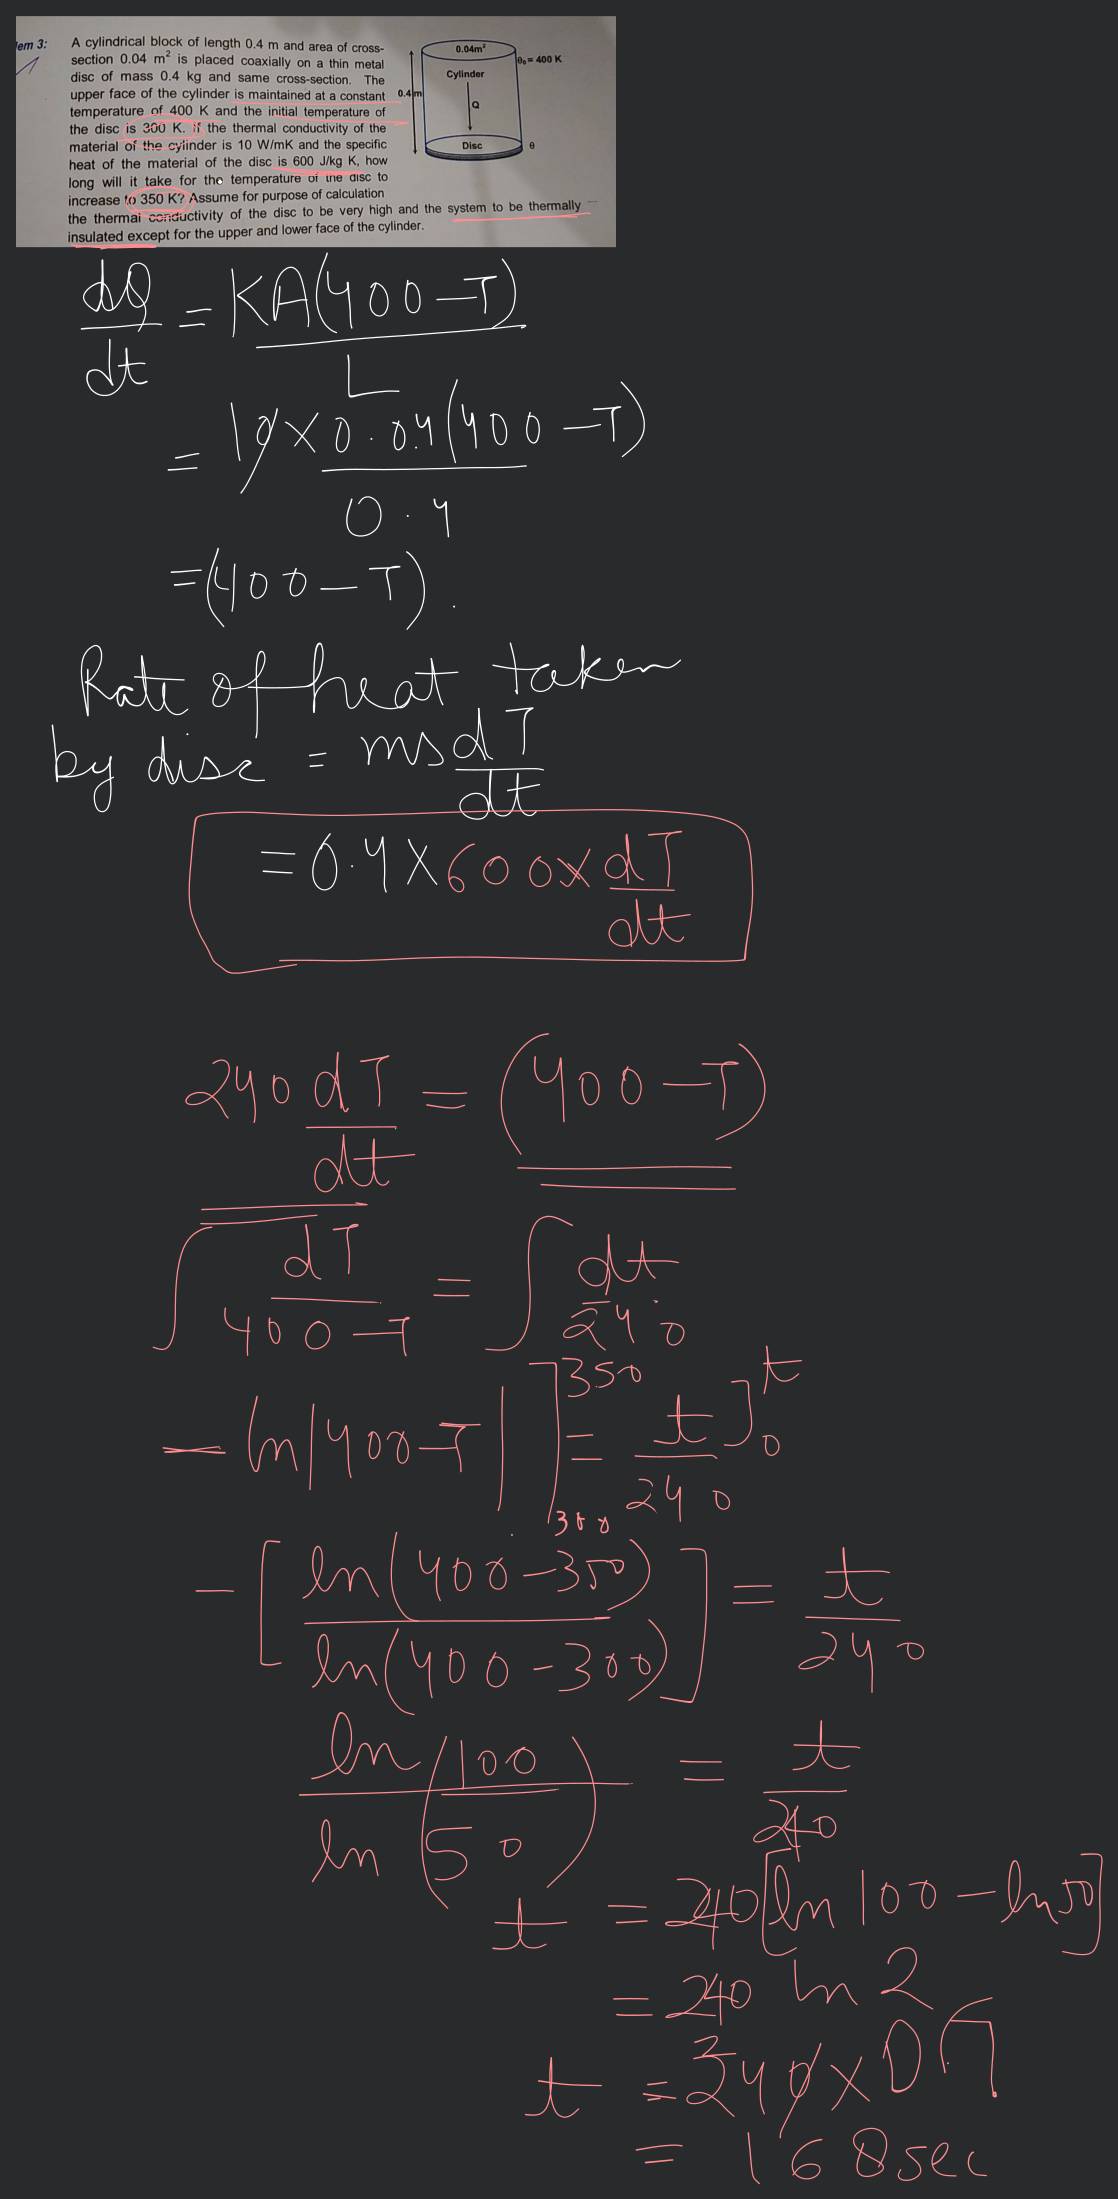 em 3:
A cylindrical block of length 0.4 m and area of cross-
section 0.04 m² is placed coaxially on a thin metal
disc of mass 0.4 kg and same cross-section. The
upper face of the cylinder is maintained at a constant
temperature of 400 K and the initial temperature of
the disc is 300 K. If the thermal conductivity of the
material of the cylinder is 10 W/mK and the specific
heat of the material of the disc is 600 J/kg K, how
long will it take for the temperature of the disc to
increase to 350 K? Assume for purpose of calculation
the thermal conductivity of the disc to be very high and the system to be thermally
insulated except for the upper and lower face of the cylinder.
0.04m²
θ₀ = 400 K
Cylinder
0.4 m
Q
Disc
θ
dQ/dt = KA(400-T)/L
= 10×0.04(400-T)/0.4
=(400-T).
Rate of heat taken
by disc = ms dT/dt
= 0.4×600× dT/dt
240 dT/dt = (400-T)
∫ dT/400-T = ∫ dt/240
-ln|400-T| ]₃₀₀³⁵⁰ = t/240 ]₀ᵗ
-[ ln(400-350)/ln(400-300) ] = t/240
ln(100/ln 50) = t/240
t = 240[ln 100 - ln 50]
= 240 ln 2
t = 240×0.7
= 168 sec